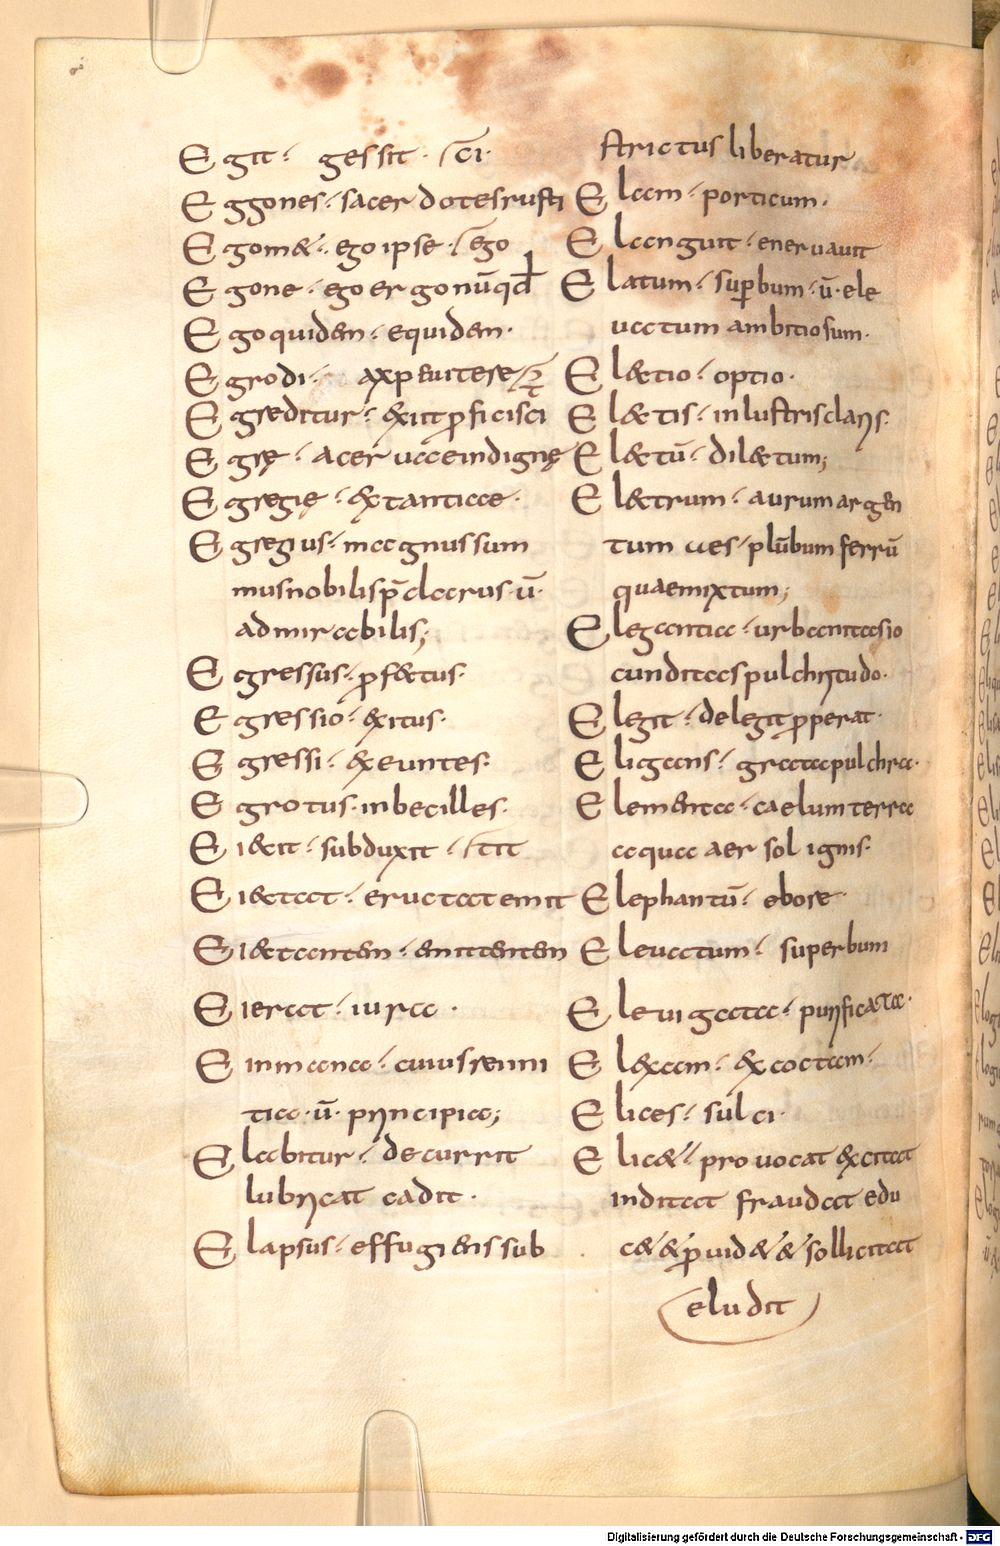 Egit· gessit· ſci·
Eggones· sacerdotes rusti
Egom&· ego ipse· ſego
Egone· ego ergo nūqd
Ego quidem· equidem·
Egrodi·
Egreditur· exiit proficisci
Egrę· acerva indignę
Egregię· extantiae·
Egregius· magnus sum
mus nobilis p̄clarus ū·
admirabilis;
Egressus· profectus·
Egressio· exitus·
Egressi· exeuntes·
Egrotus· inbecilles·
Ei&it· subduxit·
Ei&tat· eructat emit
Ei&tantem· emittentem
Eierat· iurat·
cuius
tia· ū· principia;
Elabitur· decurrit
lubricat cadit·
Elapsus· effugiens sub
strictus liberatur
Elam· porticum·
Elanguit· enervavit
Elatum· superbum· ū· ele
vatum ambitiosum·
El&tio· optio·
El&tis· inlustris claris·
El&tū· dil&tum;
El&trum· aurum argen
tum ues· plūbum ferrū
quae mixtum;
Elegantia· urbanitas io
cunditas pulchritudo·
Elegit· delegit properat·
Eligans· grata pulchra·
Elementa· caelum terra
aqua aer sol ignis·
Elephantū· ebore·
Elevatum· superbum
Elevigata· purificata·
Elexam· excoctam·
Elices· sulci·
Elic&· provocat excitat
inditat fraudat edu
c& & provid& & sollicitat
eludit
Digitalisierung gefördert durch die Deutsche Forschungsgemeinschaft - DFG